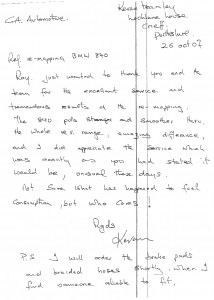 C.A. Automotive.
Kevin Bramley
house
Crieff
Perthshire
26 Oct 07
Ref. e-mapping BMW 840
Roy, just wanted to thank you and the
team for the excellent service and
tremendous results of the re-mapping.
The 840 pulls stronger and smoother thru.
the whole rev. range, amazing difference,
and I did appreciate the service which
was exactly as you had stated it
would be, unusual these days.
Not sure what has happened to fuel
consumption, but who cares!
Rgds
Kevin
P.S. I will order the brake pads
and braided hoses shortly, when I
find someone reliable to fit.